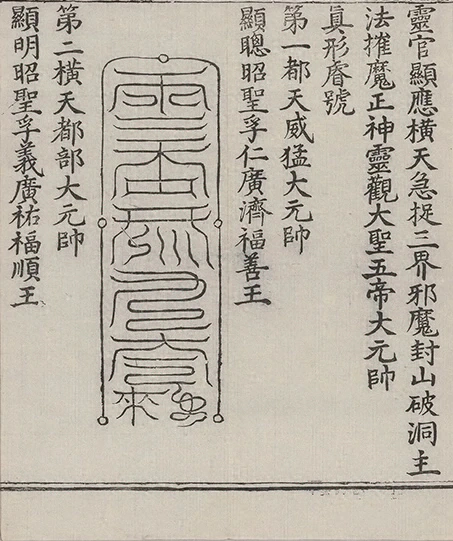 靈官顯應橫天急捉三界邪魔封山破洞主
法摧魔正神靈觀大聖五帝大元帥
眞形睿號
第一都天威猛大元帥
顯聰昭聖孚仁廣濟福善王
第二橫天都部大元帥
顯明昭聖孚義廣祐福順王